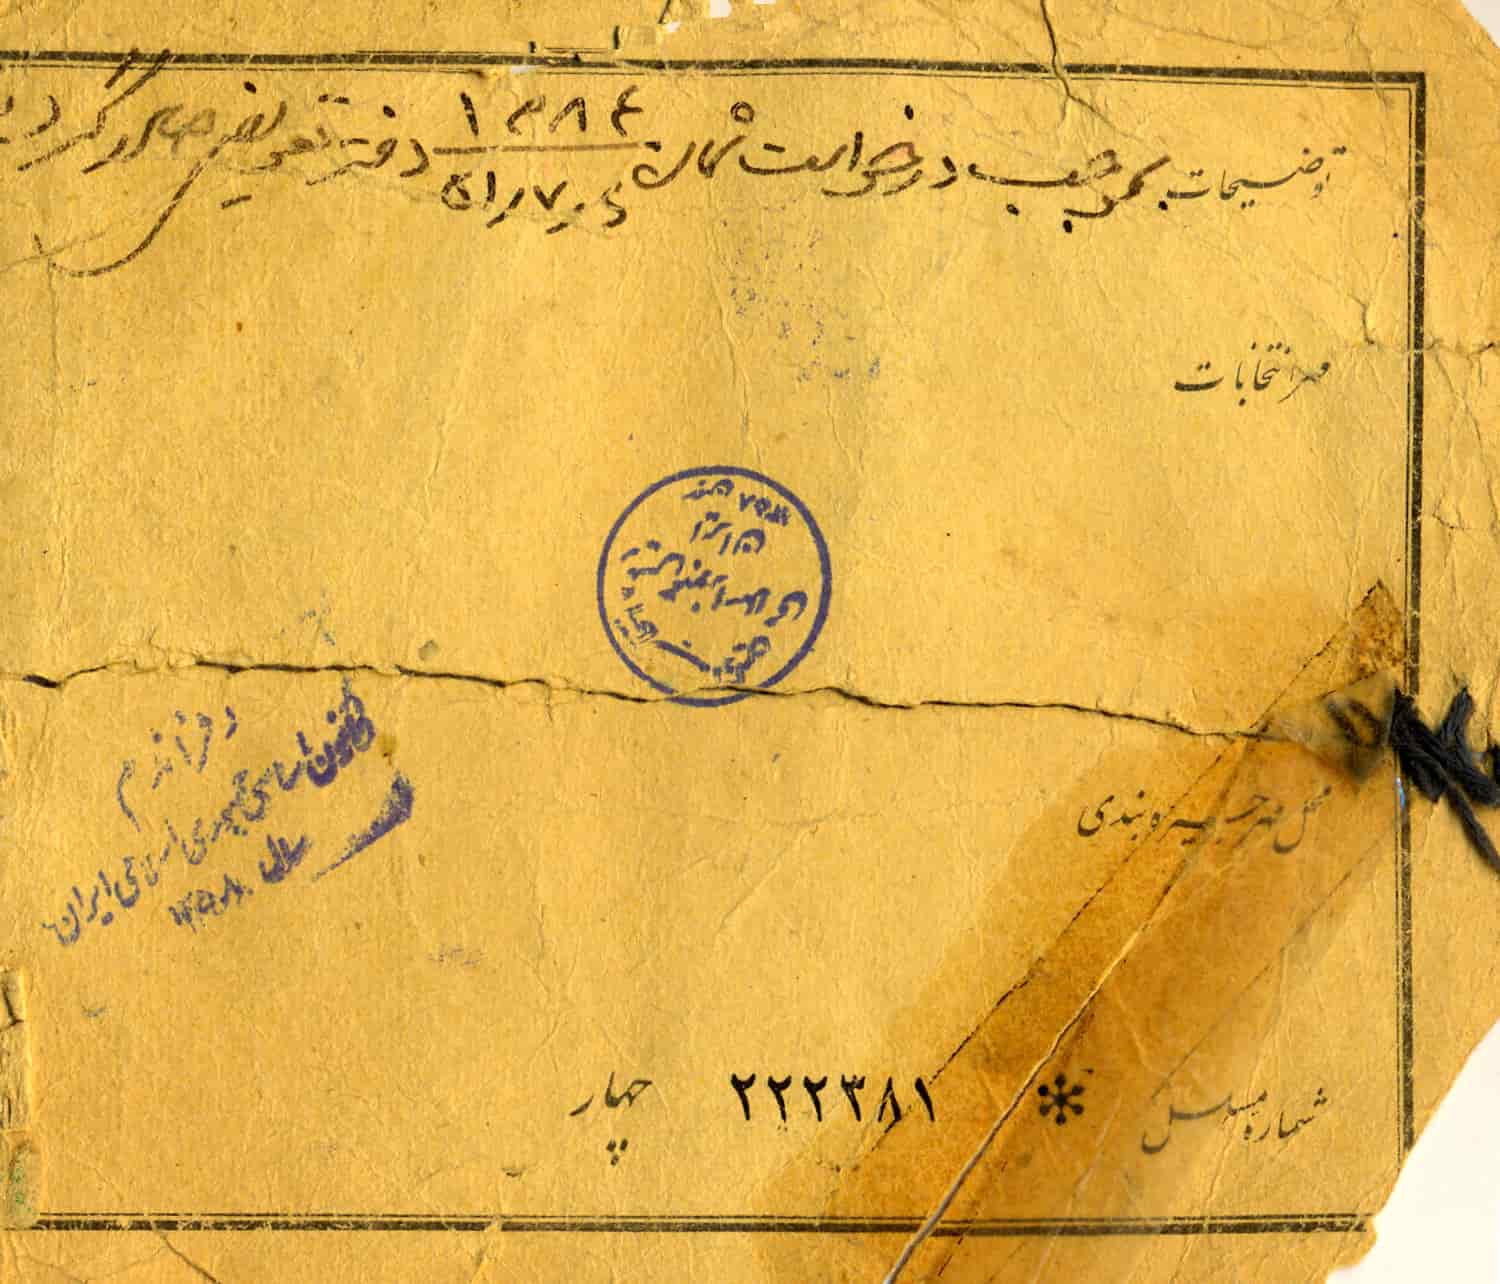 توضیحات بموجب درخواست شماره ۱۳۸۴ دفتر تعویض صادر گردید
۵۱٫۷٫۶
مهر انتخابات
رفراندم
قانون اساسی جمهوری اسلامی ایران
سال ۱۳۵۸
محل مهر جیره بندی
شماره مسلسل * ۲۲۲۳۸۱ چهار